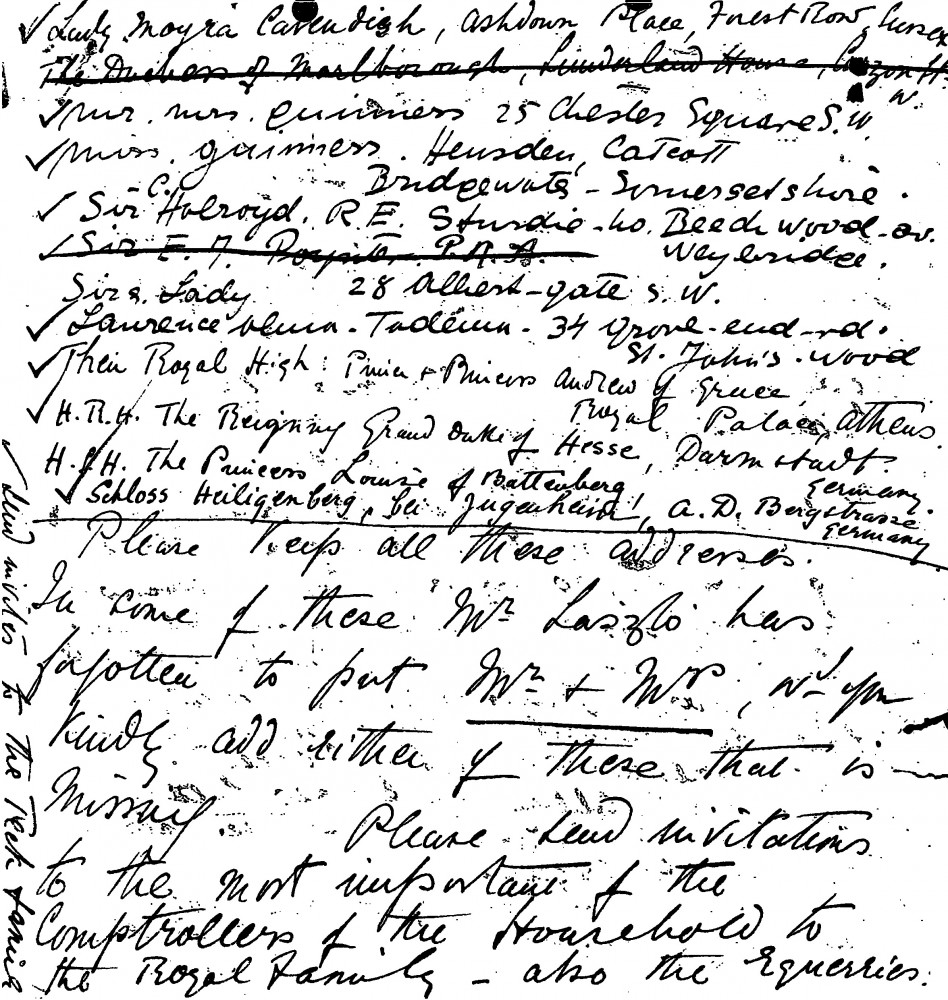 ✓ Lady Moyra Cavendish, Ashdown Place, Forest Row, Sussex
The Duchess of Marlborough, Sunderland House, Curzon St.
W.
✓ Mr. Mrs. Guinness 25 Chester Square S.W.
✓ Miss. Guinness. Heusden, Catcott
Bridgewater - Somersetshire.
✓ Sir C. Holroyd. R.E. Sturdie-ho. Beechwood-av.
Weybridge.
✓ Sir E. J. Poynter. P.R.A.
28 Albert-gate S.W.
Sir & Lady
✓ Laurence Alma-Tadema. 34 Grove-end-rd.
St. John's-wood
✓ Their Royal High: Prince + Princess Andrew of Greece,
Royal Palace, Athens.
✓ H.R.H. The Reigning Grand Duke of Hesse, Darmstadt.
Germany.
H.S.H. The Princess Louise of Battenberg
✓ Schloss Heiligenberg, bei Jugenheim, A.D. Bergstrasse
Germany
Please keep all these addresses.
In some of these Mr László has
forgotten to put Mr + Mrs, wd you
kindly add either of these that is
Missing. Please send invitations
to the most important of the
Comptrollers of the Household to
the Royal Family - also the Equerries.
✓ Send invites to the Teck family